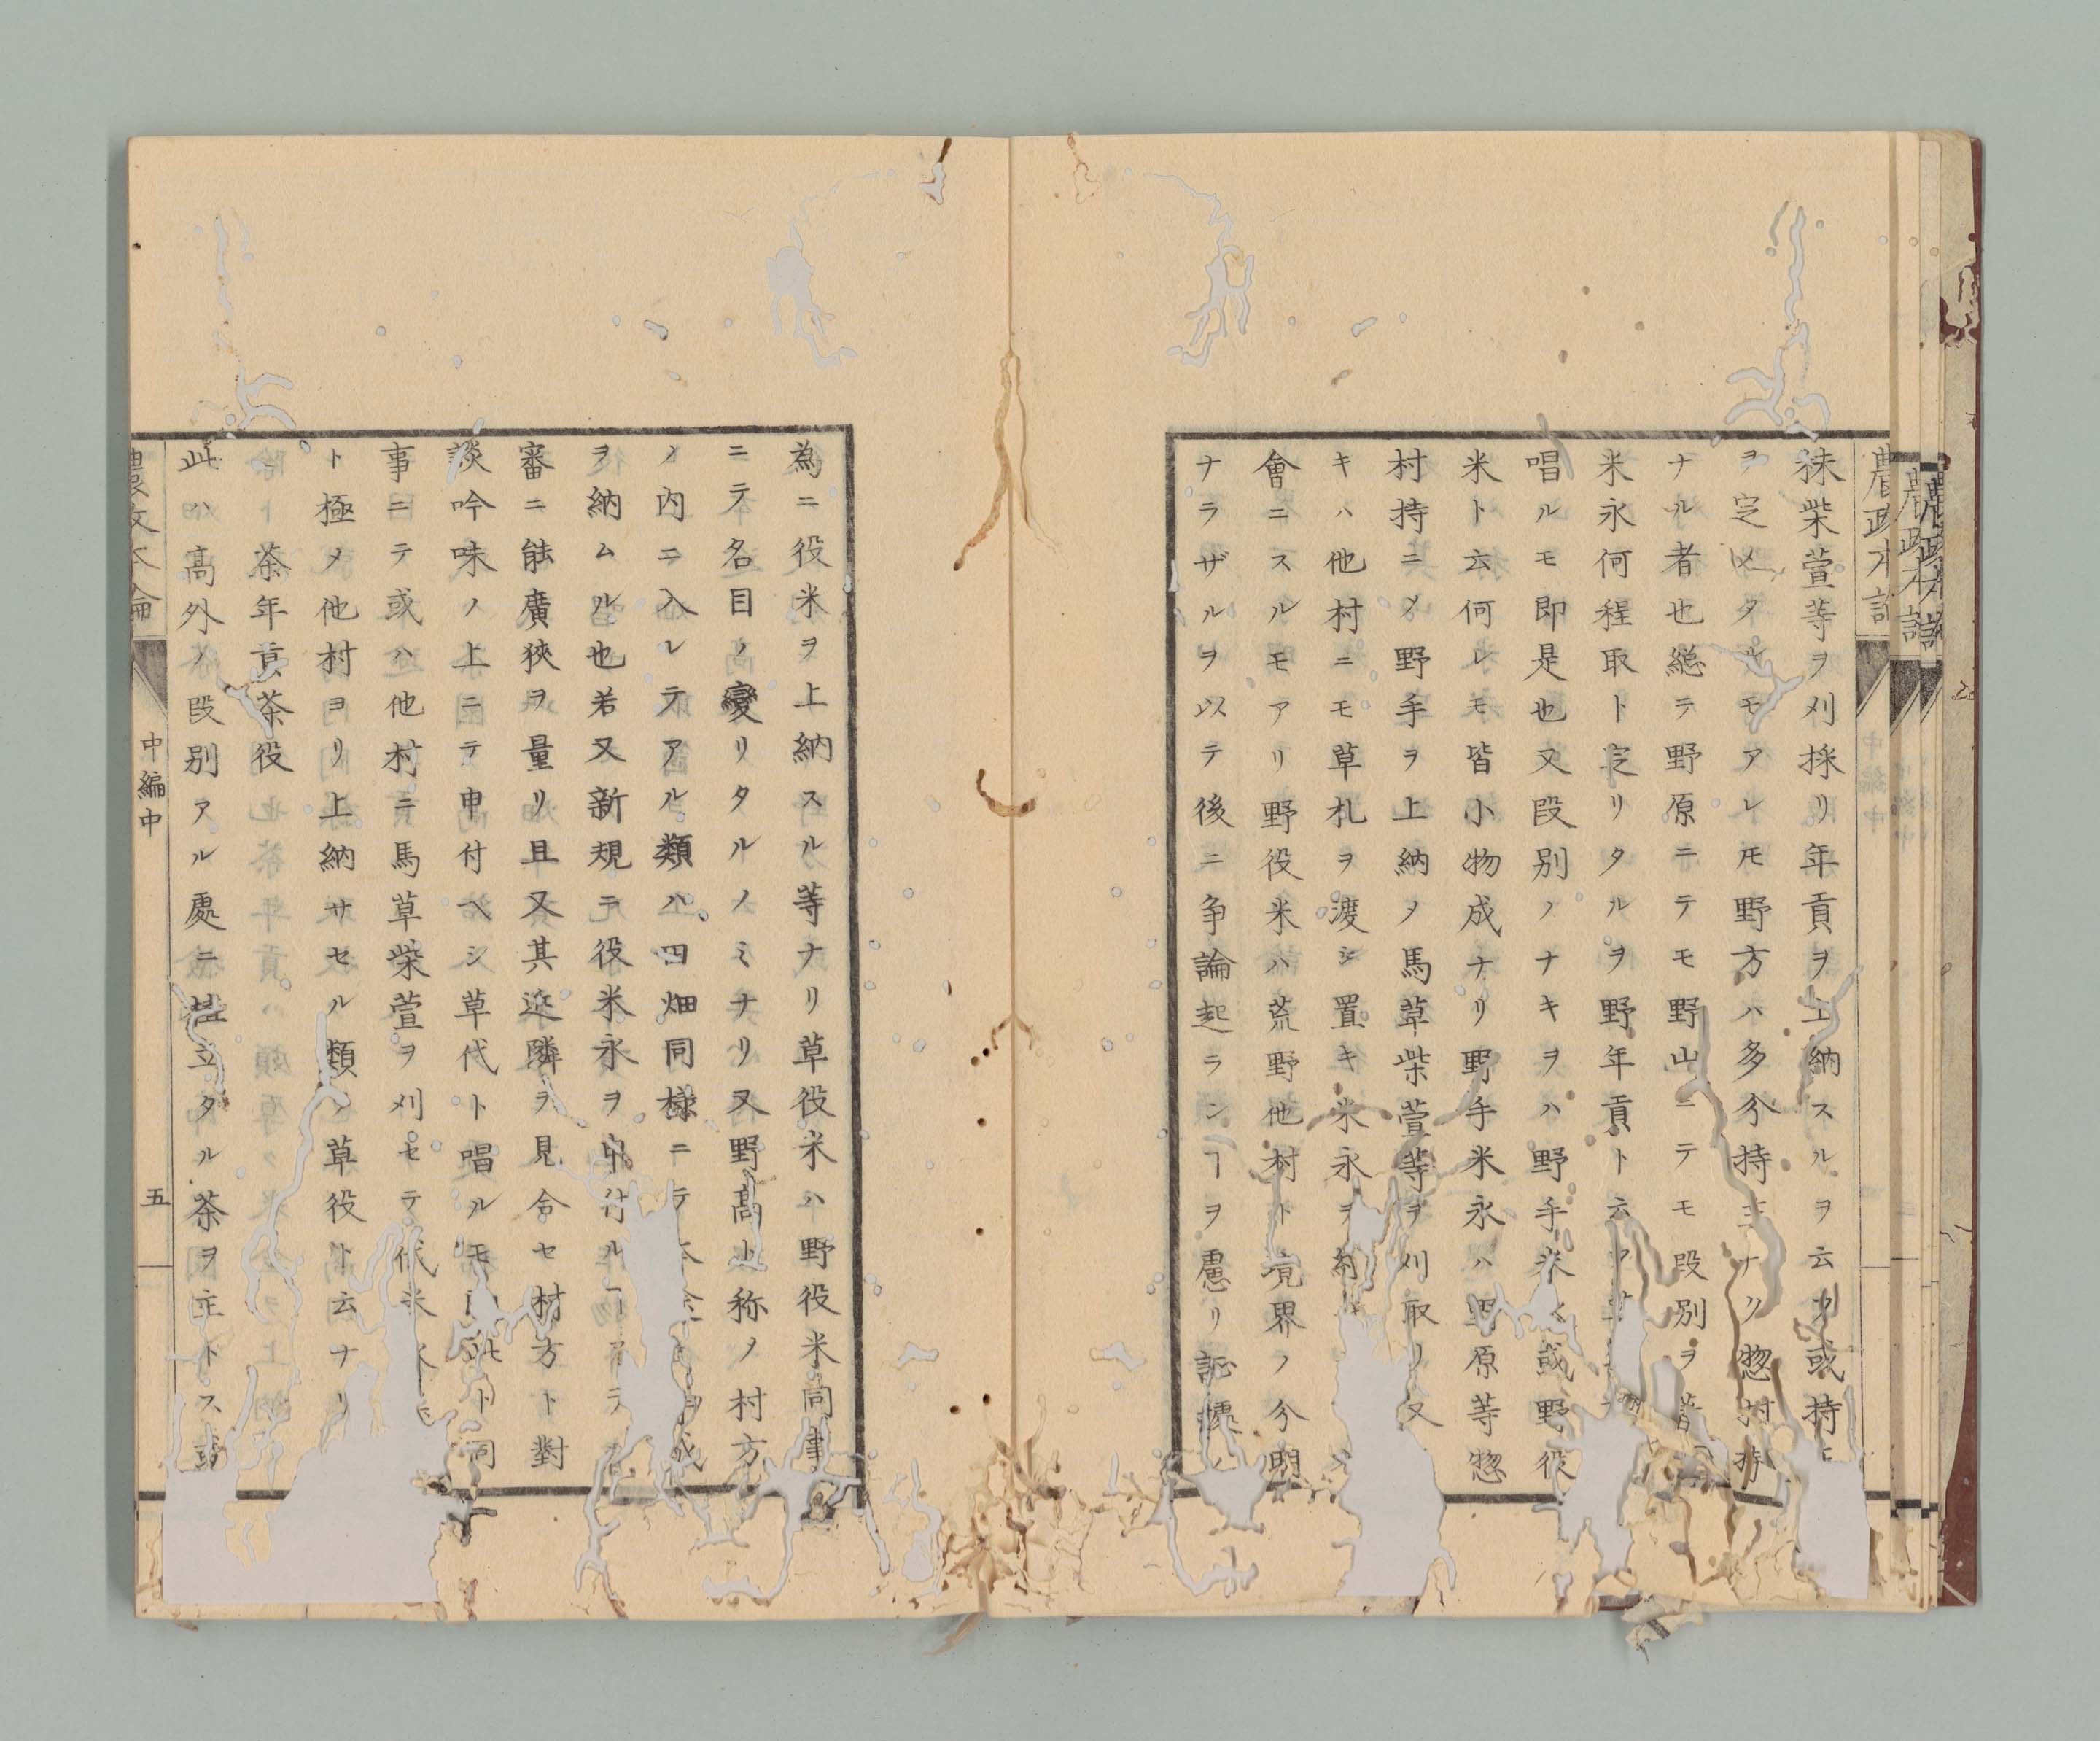 秣柴萱等ヲ刈採リ年貢ヲ上納スルヲ云カ或持
ヲ定メタルモアレ𪜈野方ハ多分持主ナリ惣村持
ナル者也総テ野原ニテモ野山ニテモ段別ヲ
米永何程取ト定リタルヲ野年貢ト云
唱ルモ即是也又段別ノナキヲハ野手米 或野役
米ト云何レモ皆小物成ナリ野手米永ハ野原等惣
村持ニメ野手ヲ上納ノ馬草柴萱等ヲ刈取リ又
キハ他村ニモ草札ヲ渡シ置キ米永ヲ納
會ニスルモアリ野役米ハ荒野他村ト境界ノ分明
ナラザルヲ以テ後ニ争論起ランヿヲ慮リ証據ノ
為ニ役米ヲ上納スル等ナリ草役米ハ野役米同事
ニテ名目ノ變リタルノミナリ又野髙ト称ノ村方
ノ内ニ入レテアル類ハ田畑同様ニテ
ヲ納ムル也若又新規ニ役米永ヲ申付ルヿアラ
審ニ能廣狹ヲ量リ且又其近隣ヲ見合セ村方ト對
談吟味ノ上ニテ申付ヘシ草代ト唱ルモ 此ト同
事ニテ或ハ他村ニ馬草柴萱ヲ刈セテ代米
ト極メ他村ヨリ上納サセル類ノ草役ト云ナリ
茶年貢茶役
此ハ髙外ノ段別アル處ニ植立タル茶ヲ主トス
中編中
五